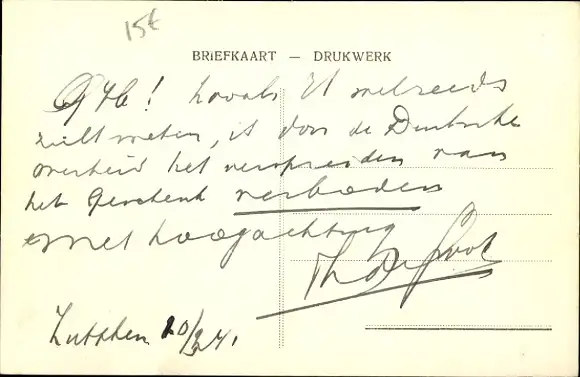 15€
BRIEFKAART — DRUKWERK
G.H.! Zooals U wel reeds
zult weten, is door de Duitsche
overheid het verspreiden van
het Geschenk verboden
Met hoogachting
Th. De Groot
Zutphen 20/3 41.